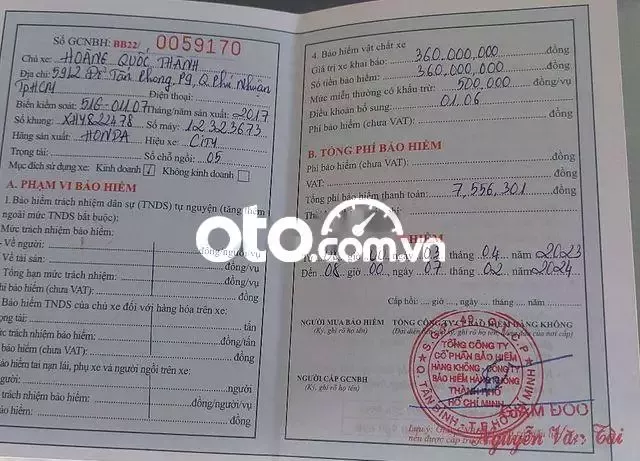 Số GCNBH: BB22/ 0059170
Chủ xe: HOÀNG QUỐC THÀNH
Địa chỉ: 59L2 Tân Phong, P9, Q. Phú Nhuận
TpHCM Điện thoại:
Biển kiểm soát: 51G-01107 Tháng/năm sản xuất: 2017
Số khung: Số máy: 12323673
Hãng sản xuất: HONDA Hiệu xe: CITY
Trọng tải: Số chỗ ngồi: 05
Mục đích sử dụng xe: Kinh doanh Không kinh doanh
A. PHẠM VI BẢO HIỂM
1. Bảo hiểm trách nhiệm dân sự (TNDS) tự nguyện (tăng thêm
ngoài mức TNDS bắt buộc):
Mức trách nhiệm bảo hiểm:
- Về người: đồng/người/vụ
- Về tài sản: đồng/vụ
- Tổng hạn mức trách nhiệm: đồng/vụ
Phí bảo hiểm (chưa VAT): đồng
Bảo hiểm TNDS của chủ xe đối với hàng hóa trên xe:
tấn
trách nhiệm bảo hiểm: đồng/tấn
bảo hiểm (chưa VAT): đồng
bảo hiểm tai nạn lái, phụ xe và người ngồi trên xe:
người: người
trách nhiệm bảo hiểm: đồng/người/vụ
bảo hiểm: đồng
4. Bảo hiểm vật chất xe
Giá trị xe khai báo: 360.000,000 đồng
Số tiền bảo hiểm: 360.000,000 đồng
Mức miễn thường có khấu trừ: 500,000 đồng/vụ
Điều khoản bổ sung: 01.06
Phí bảo hiểm (chưa VAT): đồng
B. TỔNG PHÍ BẢO HIỂM
Phí bảo hiểm (chưa VAT): đồng
VAT: đồng
Tổng phí bảo hiểm thanh toán: 7,556,301 đồng
oto.com.vn
HIỂM
00, ngày 03 tháng 04 năm 2023
Đến 08 giờ 00, ngày 07 tháng 02 năm 2024
Cấp hồi: .... giờ ...., ngày .... tháng .... năm
NGƯỜI MUA BẢO HIỂM TỔNG CÔNG TY CP BẢO HIỂM HÀNG KHÔNG
(Ký, ghi rõ họ tên)
NGƯỜI CẤP GCNBH
(Ký, ghi rõ họ tên)
TỔNG CÔNG TY
CỔ PHẦN BẢO HIỂM
HÀNG KHÔNG - CÔNG TY
BẢO HIỂM HÀNG KHÔNG
THÀNH PHỐ
HỒ CHÍ MINH
Q. TÂN BÌNH - T.P HỒ CHÍ MINH
GIÁM ĐỐC
Nguyễn Văn Tài